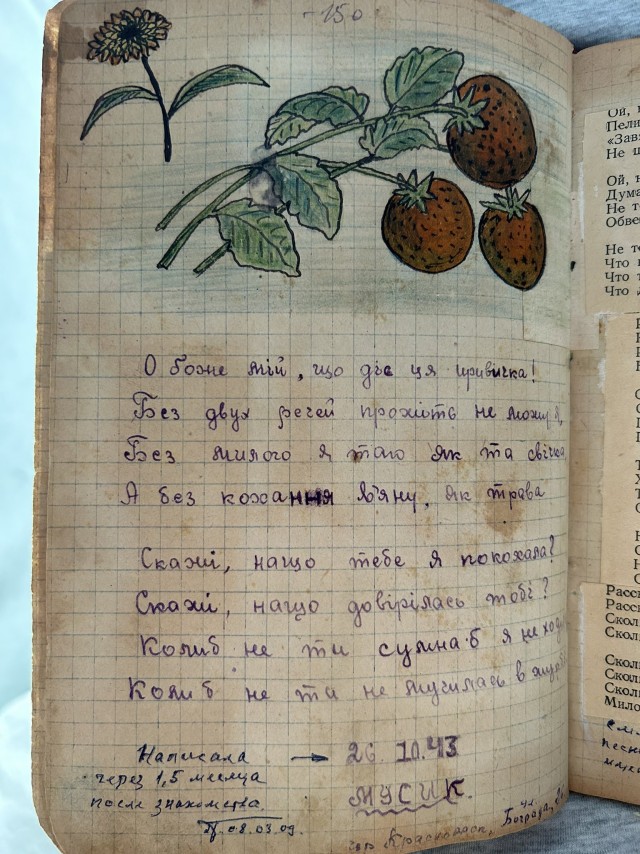 -150
О боже мій, що діє ця привичка!
Без двух речей прожіть не можу я,
Без милого я таю як та свічка
А без кохання вʼяну, як трава
Скажі, нащо тебе я покохала?
Скажі, нащо довірілась тобі?
Колиб не ти сумна б я не ход
Колиб не та не мучилась в
Написала → 26 10.43
через 1,5 месяца
после знакомства.
08.03.09.
МУСИК.
гор Красноярск, ул. Бограда,
Ой,
Пели
«Зав
Не ш
Ой, н
Дума
Не т
Обве
Не т
Что
Что
Что
Расс
Расс
Скол
Скол
Скол
Скол
Скол
Мило